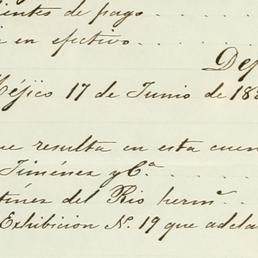 ientes de pago . . . .
en efectivo . . . . .
Dep
Méjico 17 de Junio de 18
ue resulta en esta cuen
Jiménez y Cª . . . . .
tinez del Rio hermˢ . . .
Exhibicion N. 19 que adela